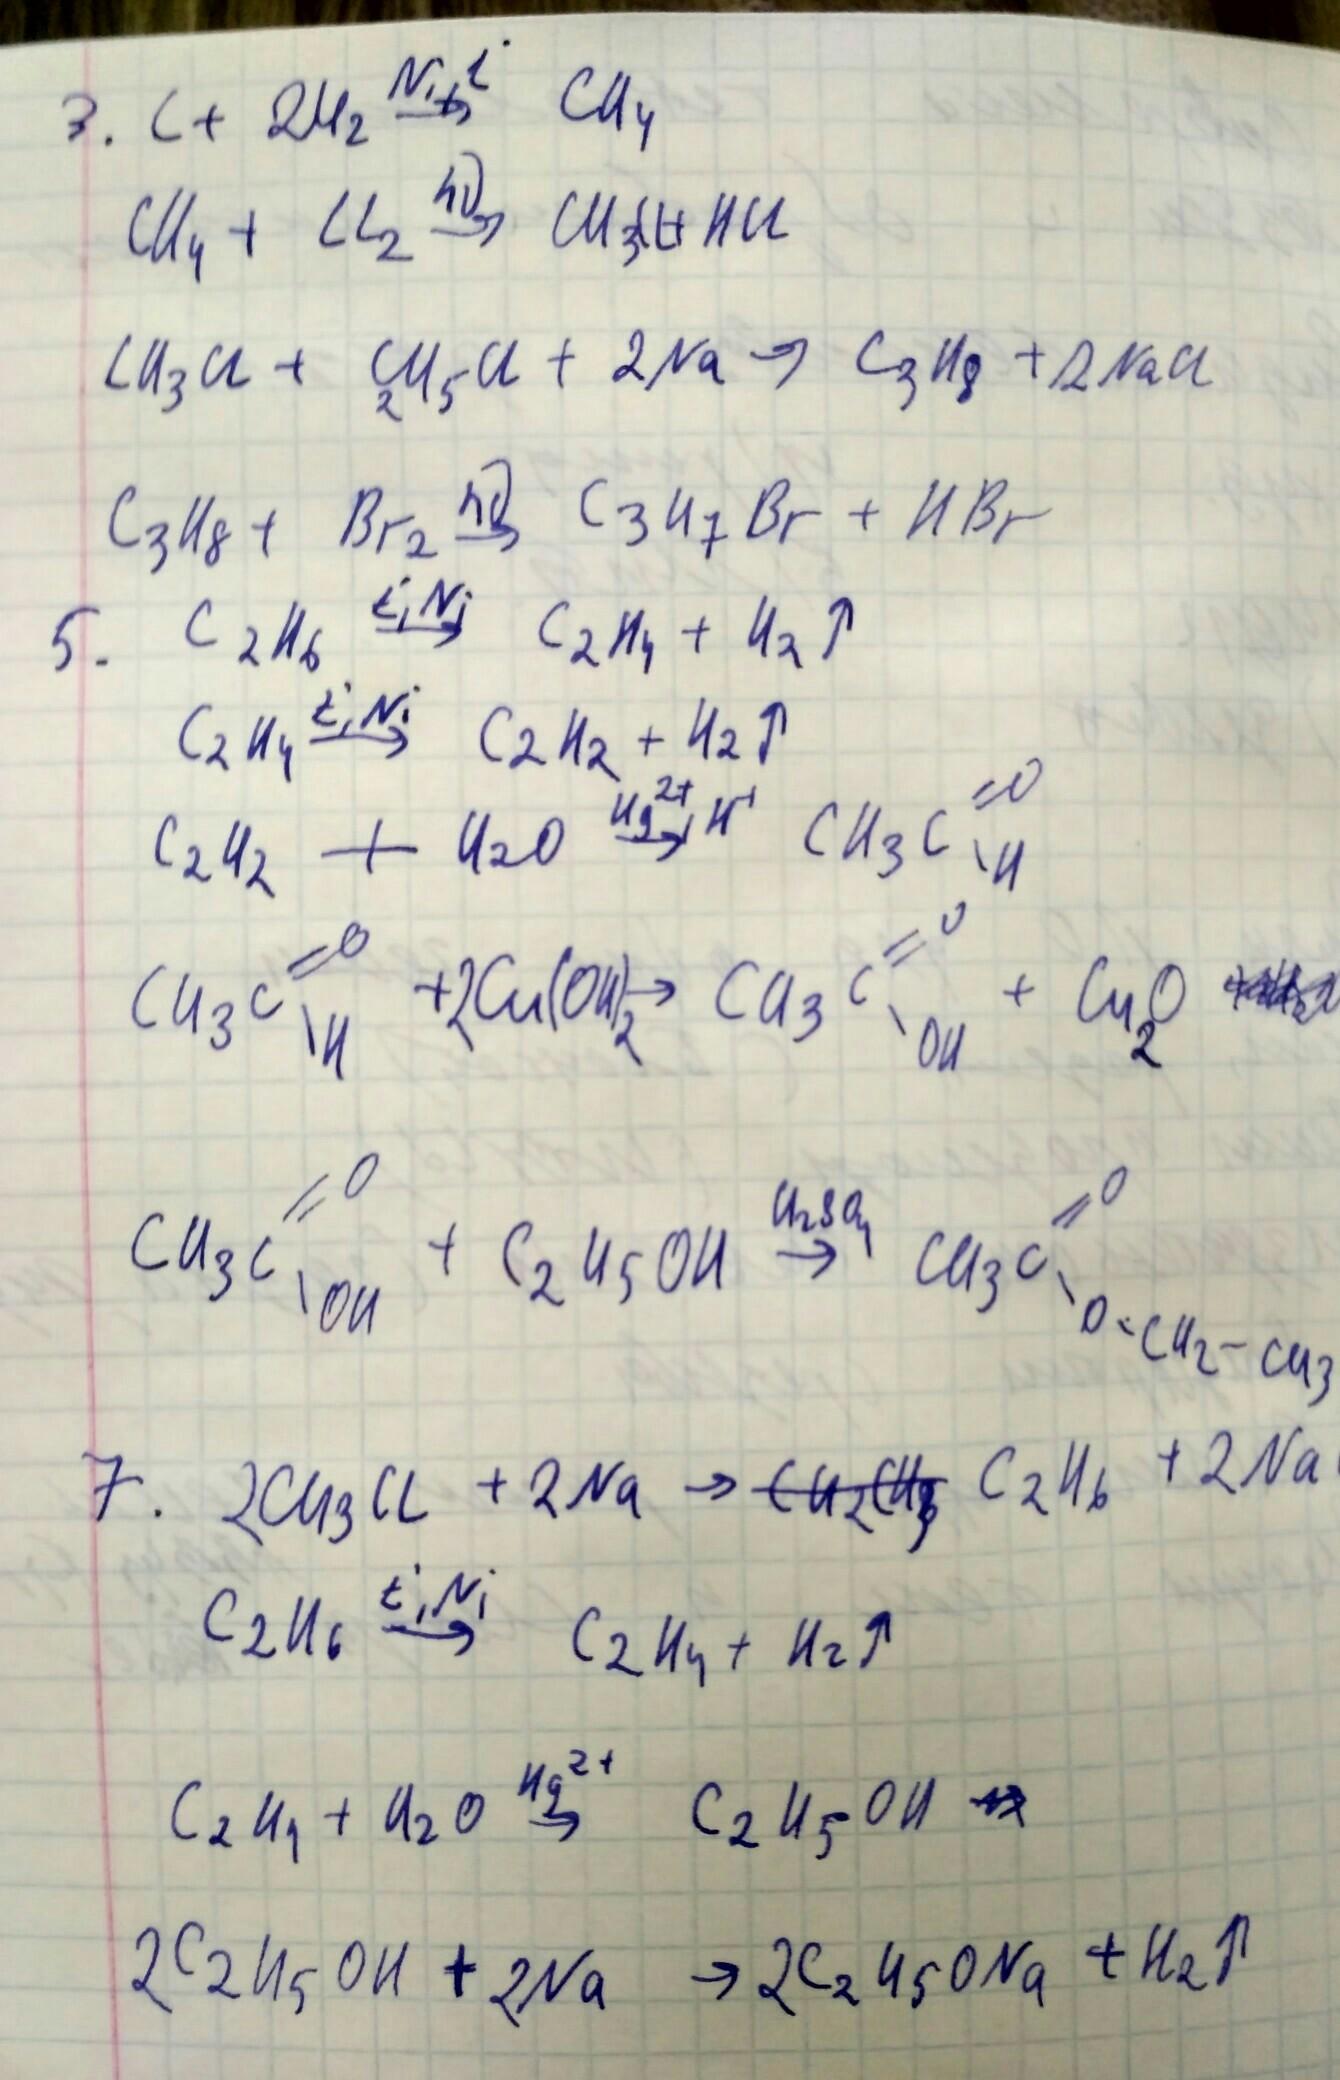 3. C + 2H2 Ni, t → CH4
CH4 + Cl2 hν → CH3Cl + HCl
CH3Cl + C2H5Cl + 2Na → C3H8 + 2NaCl
C3H8 + Br2 hν → C3H7Br + HBr
5. C2H6 t, Ni → C2H4 + H2↑
C2H4 t, Ni → C2H2 + H2↑
C2H2 + H2O Hg2+, H+ → CH3C=O\H
CH3C=O\H + 2Cu(OH)2 → CH3C=O\OH + Cu2O
CH3C=O\OH + C2H5OH H2SO4 → CH3C=O\O-CH2-CH3
7. 2CH3Cl + 2Na → C2H6 + 2Na
C2H6 t, Ni → C2H4 + H2↑
C2H4 + H2O Hg2+ → C2H5OH
2C2H5OH + 2Na → 2C2H5ONa + H2↑